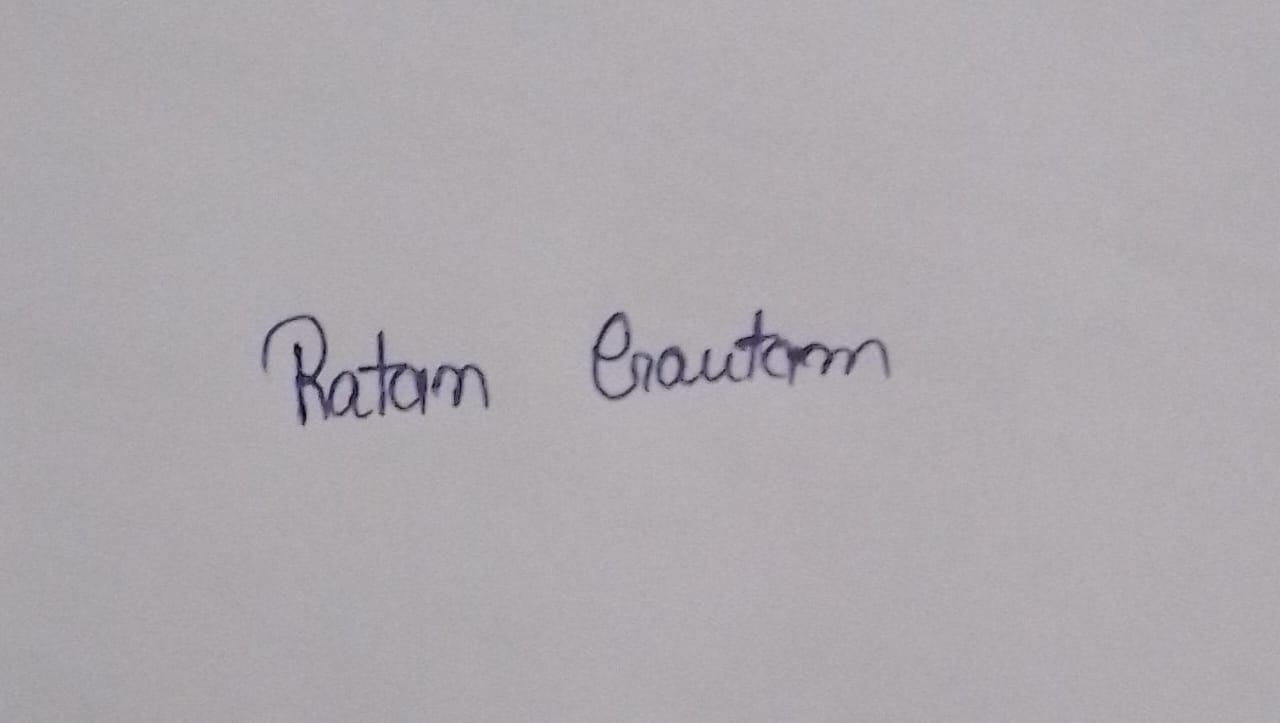 Ratan Gautam